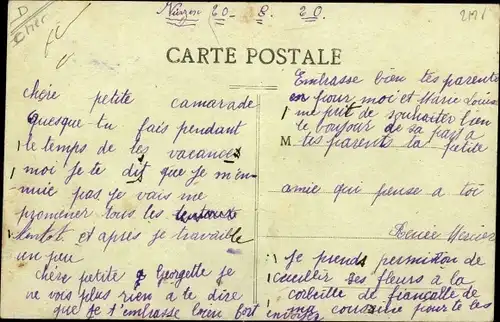 D
Cher
20 - 8 - 20
CARTE POSTALE
chère petite camarade
quesque tu fais pendant
le temps de tes vacances
moi je te dit que je m'en-
nuie pas je vais me
promener tous les
et après je travaille
un peu
chère petite Georgette je
ne vois plus rien a te dire
que je t'embrasse bien fort
Embrasse bien tes parents
pour moi et Marie Louise
me prit de souhaiter bien
le bonjour de sa part a
M tes parents la petite
amie qui pense a toi
Renée
je prends permition de
cueillir des fleurs à la
corbeille de
cousine pour te les
envoyer